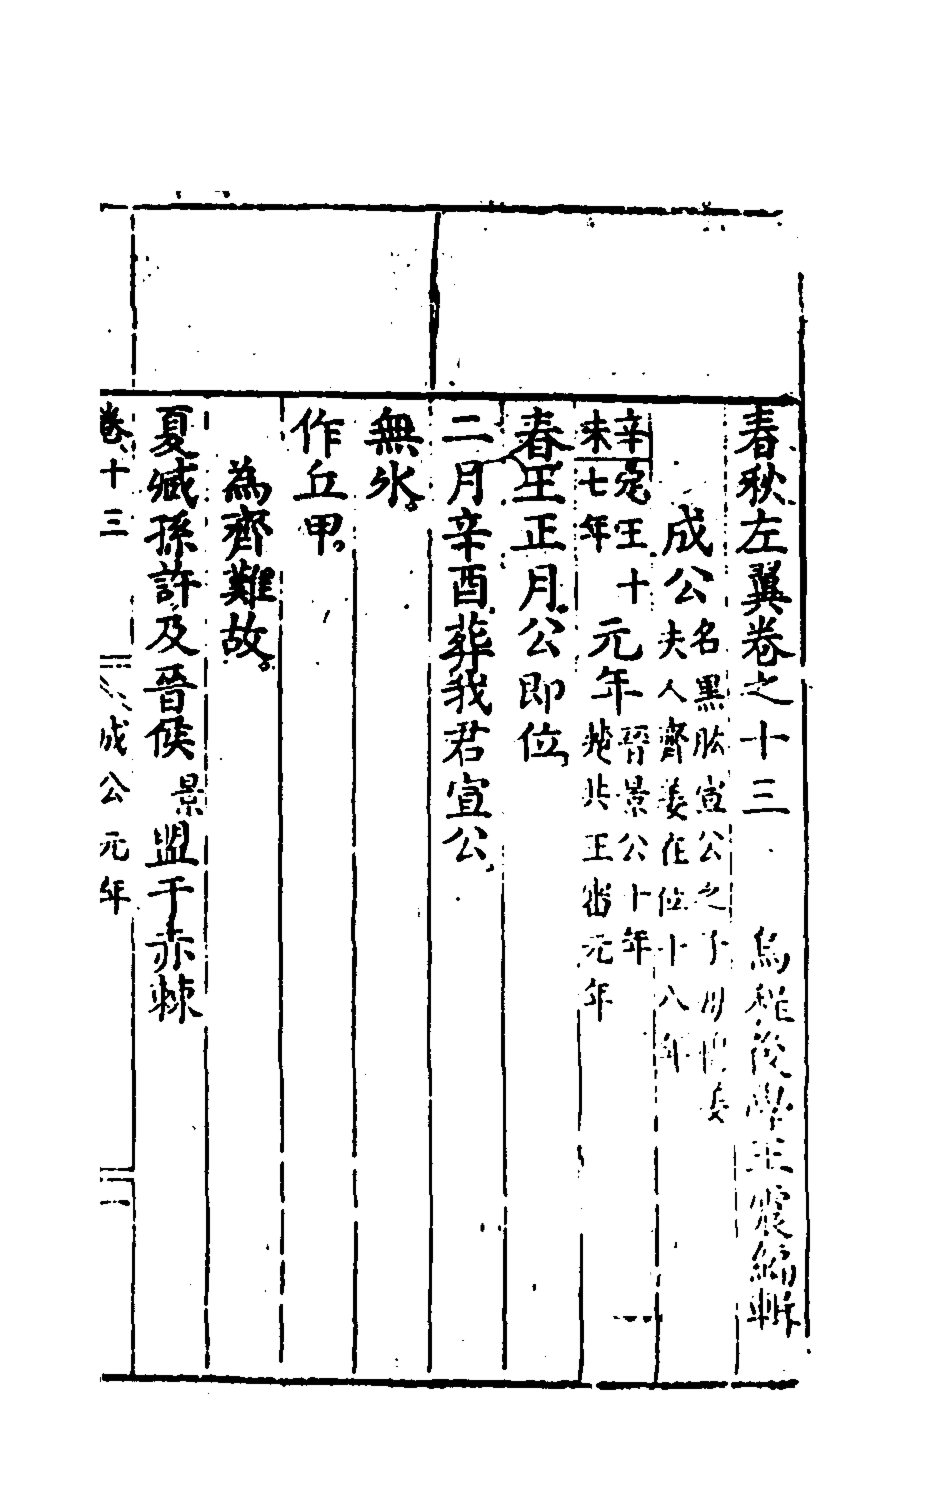 春秋左翼卷之十三　烏程後學王震編輯
成公 名黑肱宣公之子母穆姜
夫人齊姜在位十八年
辛未 定王十七年 元年 晉景公十年
楚共王審元年
春王正月公即位
二月辛酉葬我君宣公
無氷
作丘甲
為齊難故
夏臧孫許及晉侯景盟于赤棘
卷十三　成公元年　一